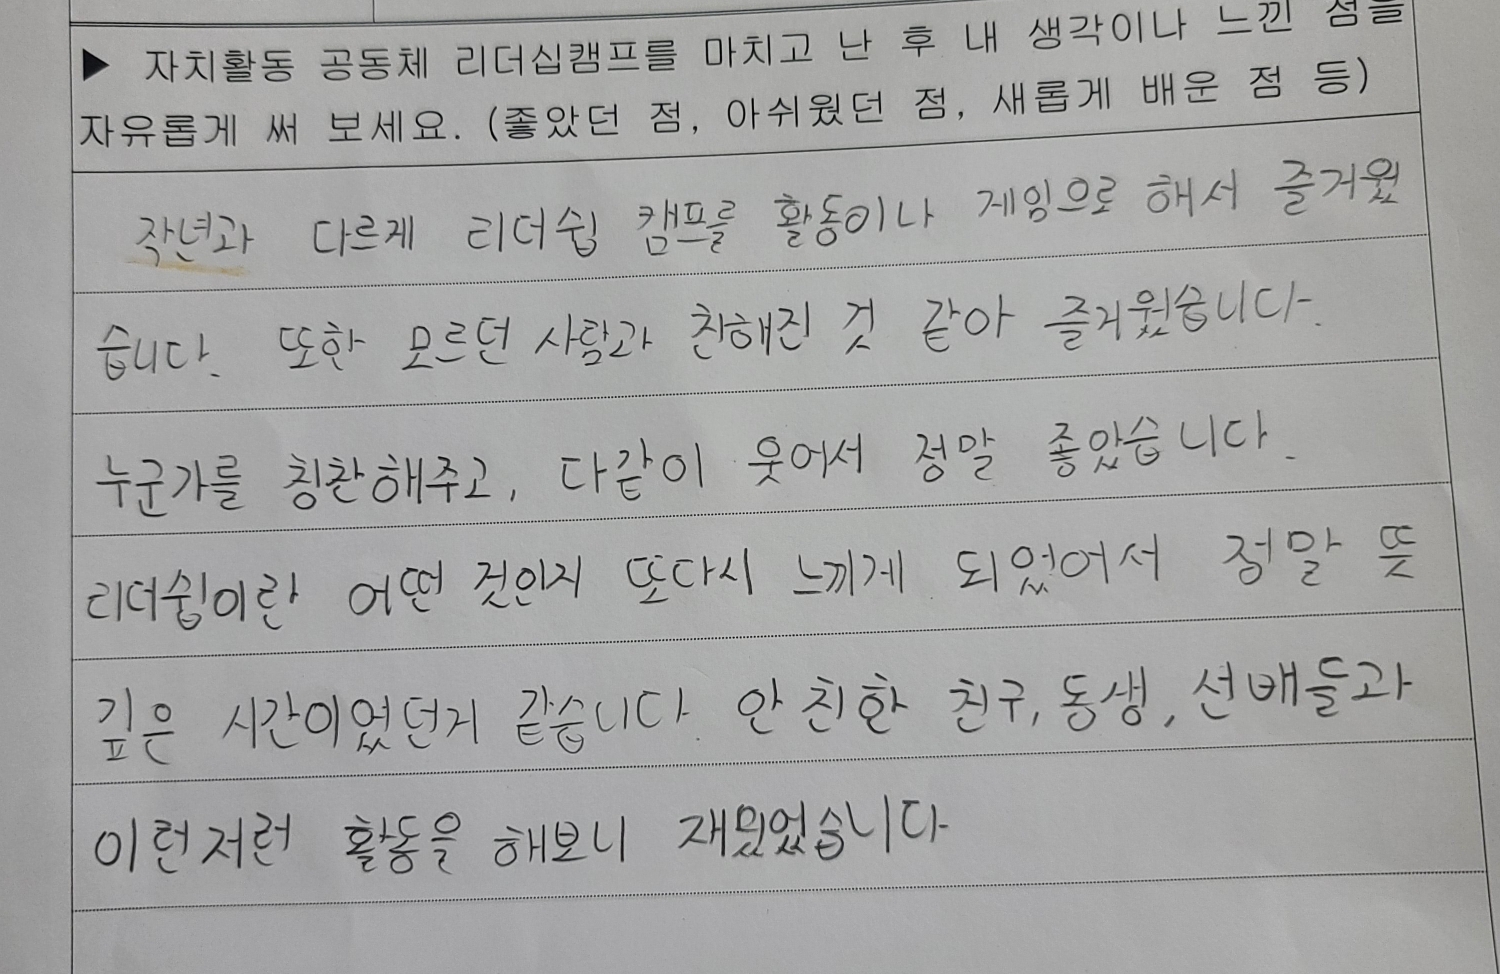 ▶ 자치활동 공동체 리더십캠프를 마치고 난 후 내 생각이나 느낀 점을
자유롭게 써 보세요. (좋았던 점, 아쉬웠던 점, 새롭게 배운 점 등)
작년과 다르게 리더쉽 캠프를 활동이나 게임으로 해서 즐거웠
습니다. 또한 모르던 사람과 친해진 것 같아 즐거웠습니다.
누군가를 칭찬해주고, 다같이 웃어서 정말 좋았습니다.
리더쉽이란 어떤 것인지 또다시 느끼게 되었어서 정말 뜻
깊은 시간이었던거 같습니다. 안 친한 친구, 동생, 선배들과
이런저런 활동을 해보니 재밌었습니다